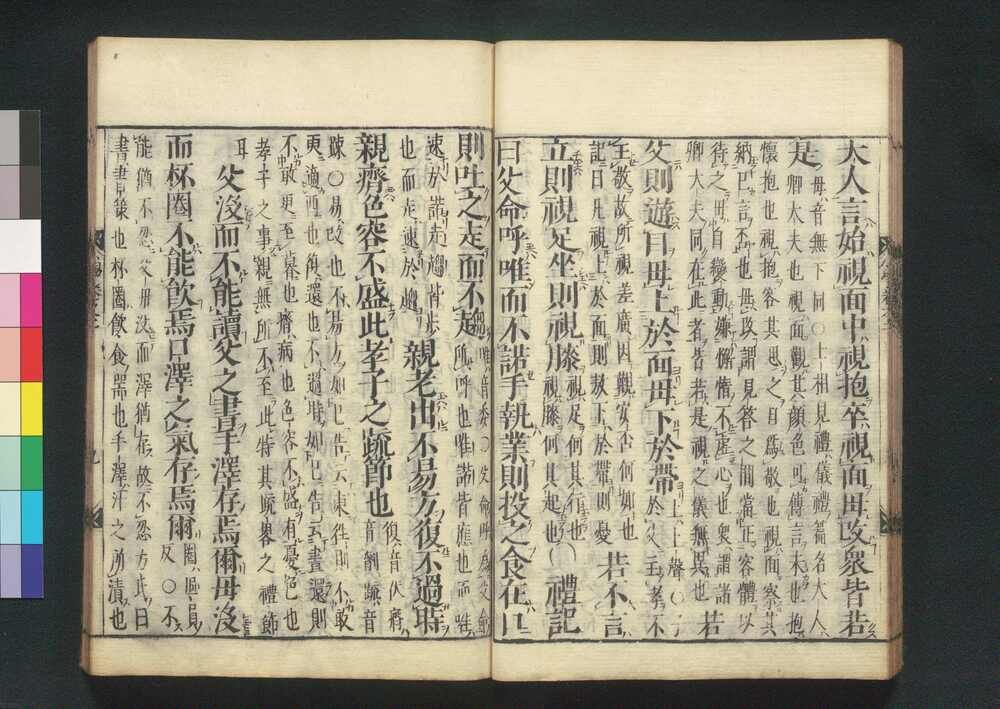 大人言始視面中視抱卒視面毋改衆皆若
是毋音無下同○士相見禮儀禮篇名大人
卿大夫也視面觀其顔色可傳言未也抱
懷抱也視抱容其思之自爲敬也視面察其
納已言否也毋改謂見答之間當正容體以
待之毋自變動爲嫌懈惰不虚心也衆謂諸
卿大夫同在此者皆若是視之儀無異也若
父則遊目毋上於面毋下於帶上上聲○
於父主孝不
主敬故所視差廣因觀安否何如也若不言
記曰凡視上於面則敖下於帶則憂
立則視足坐則視膝視足伺其行也
視膝伺其起也○禮記
曰父命呼唯而不諾手執業則投之食在口
則吐之走而不趨唯音委○父命呼爲父命
所呼也唯諾皆應也而唯
速於諾走趨皆步
也而走速於趨親老出不易方復不過時
親癠色容不盛此孝子之疏節也復音伏癠
音劑疏音
疎○易改也不易方如已告云東往則不敢
更適西也復還也不過時如已告云晝還則
不敢更至暮也癠病也色容不盛有憂色也
孝子之事親無所不至此特其疏畧之禮節
耳父沒而不能讀父之書手澤存焉爾毋沒
而杯圈不能飮焉口澤之氣存焉爾圈區員
反○不
能猶不忍父毋沒而澤猶在故不忍方氏曰
書書策也杯圈飮食器也手澤汗之所漬也